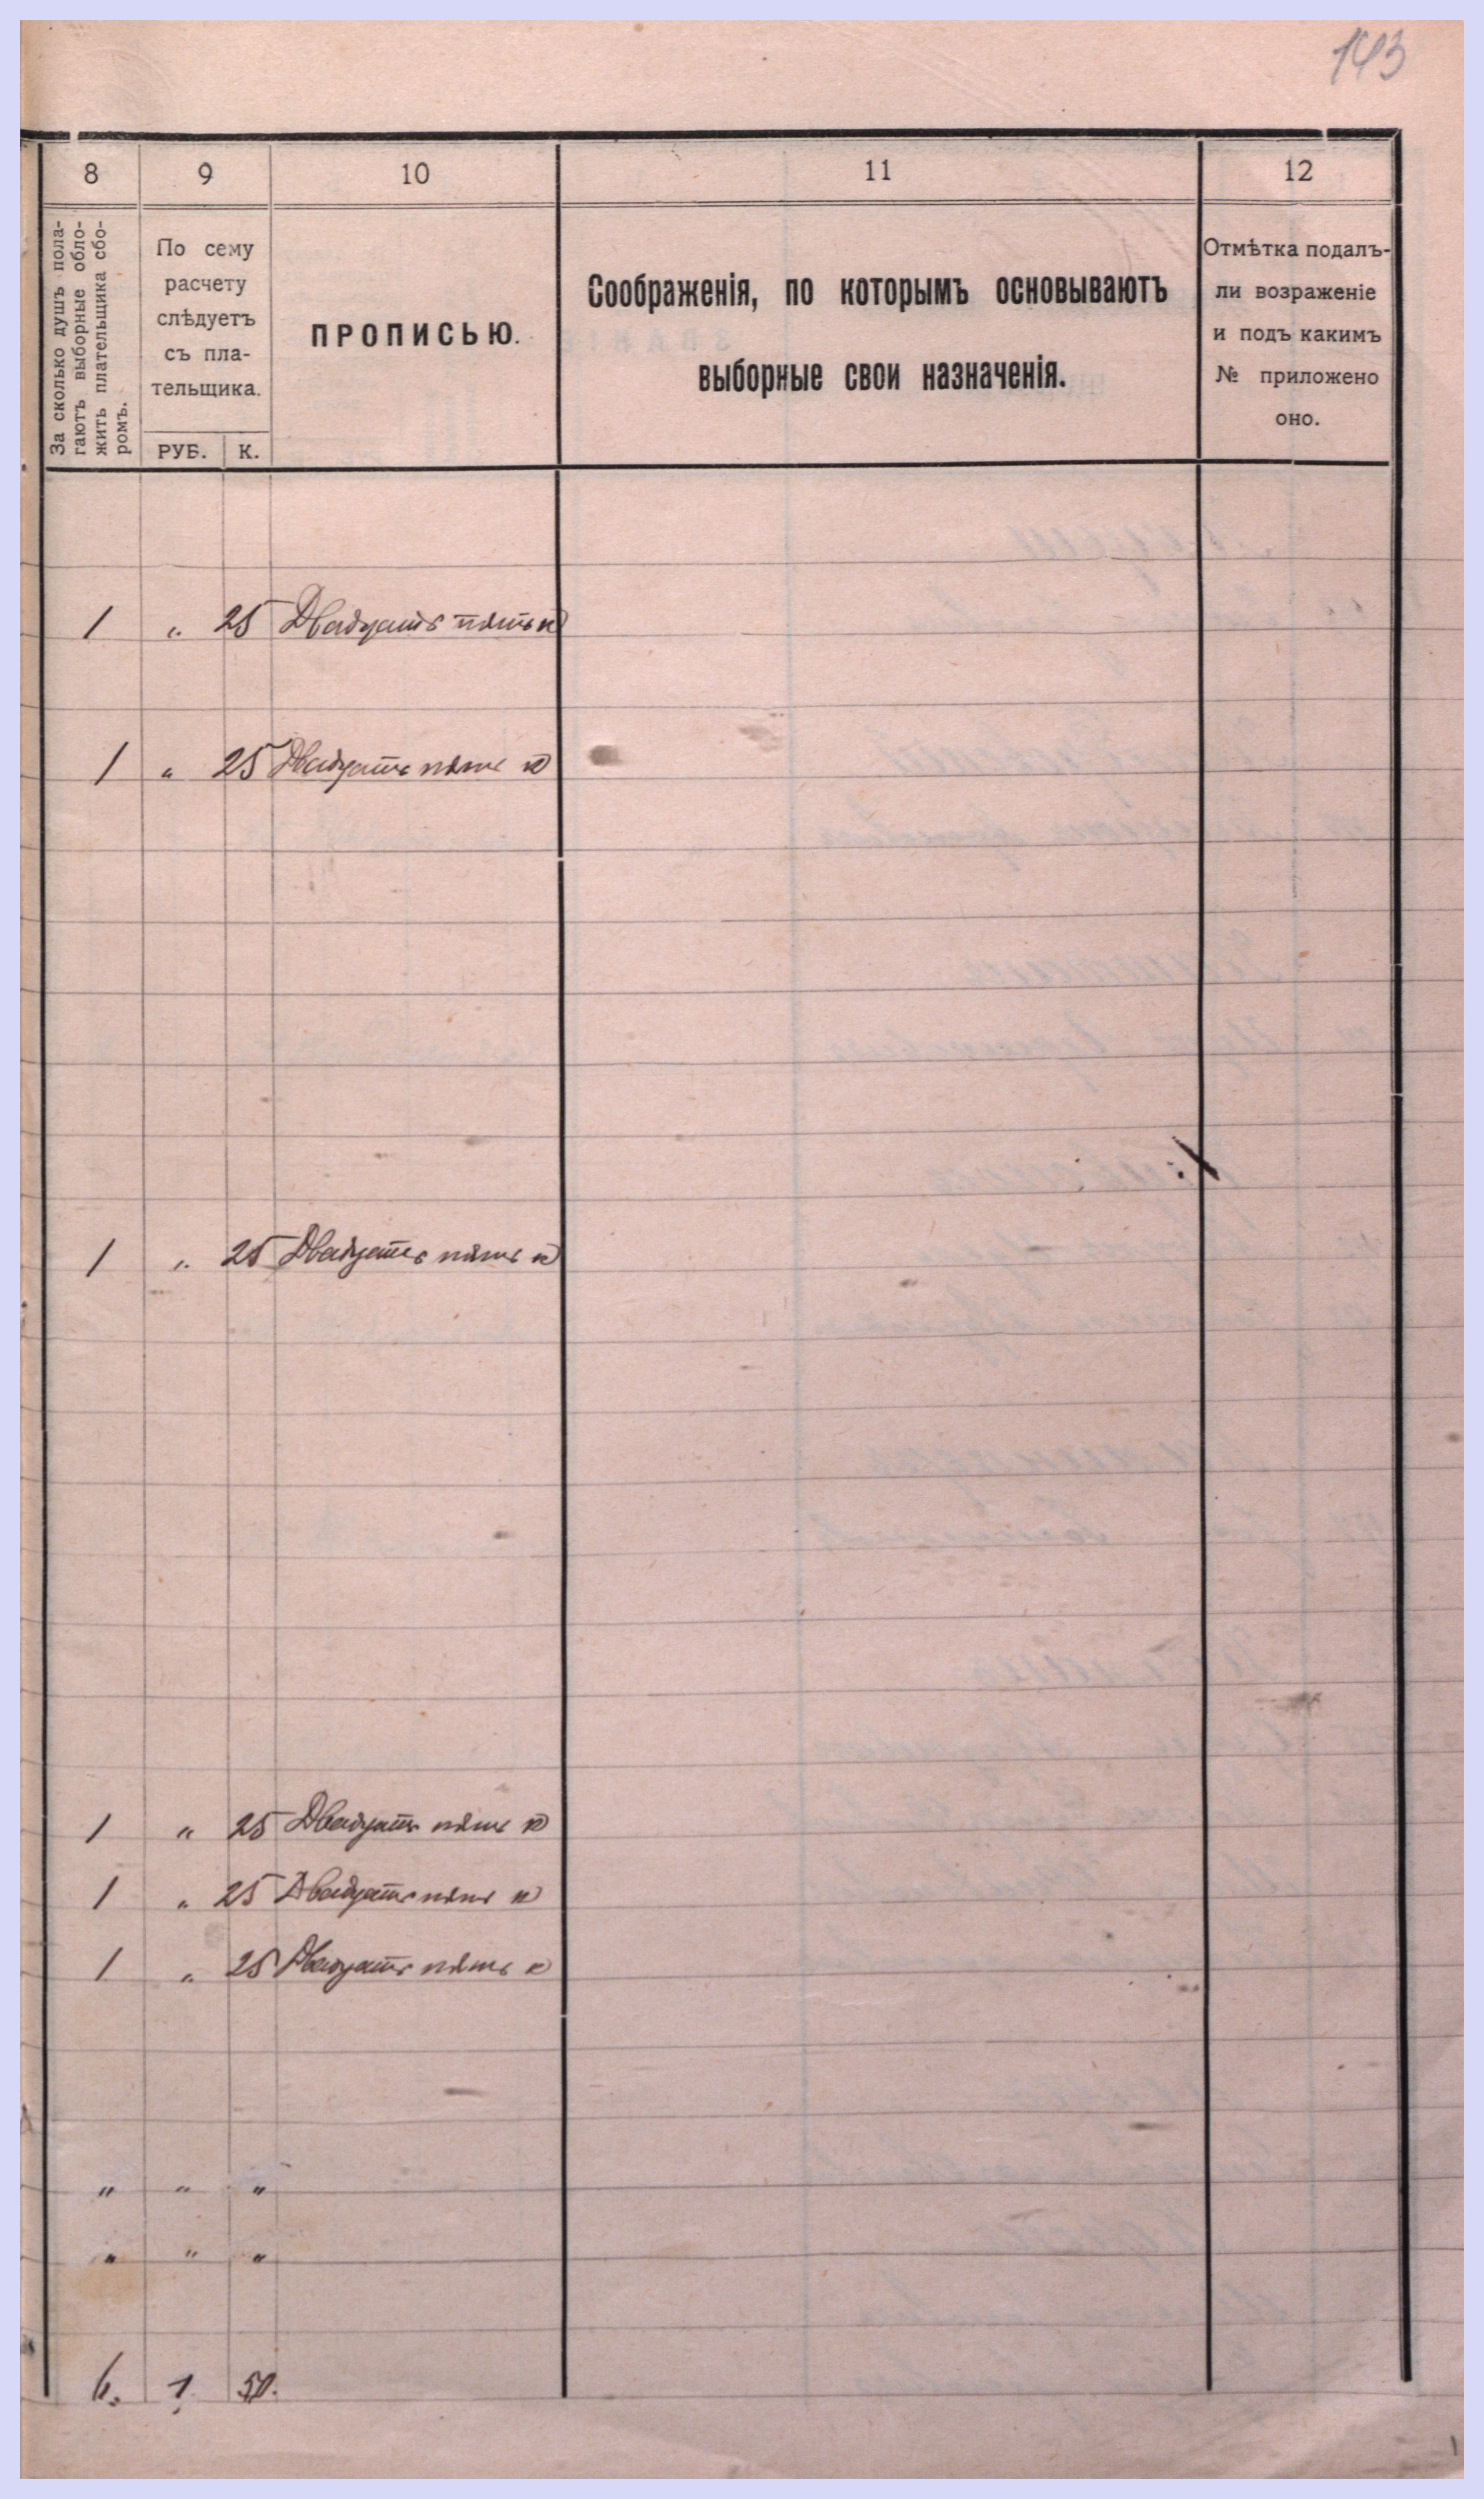 143
8 9 10 11 12
За сколько душъ пола-
гаютъ выборные обло-
жить плательщика сбо-
ромъ.
По сему
расчету
слѣдуетъ
съ пла-
тельщика.
РУБ. К.
ПРОПИСЬЮ.
Соображенія, по которымъ основываютъ
выборные свои назначенія.
Отмѣтка подалъ-
ли возраженіе
и подъ какимъ
№ приложено
оно.
1 „ 25 Двадцать пять к
1 „ 25 Двадцать пять к
1 „ 25 Двадцать пять к
1 „ 25 Двадцать пять к
1 „ 25 Двадцать пять к
1 „ 25 Двадцать пять к
„ „ „
„ „ „
6. 1. 50.